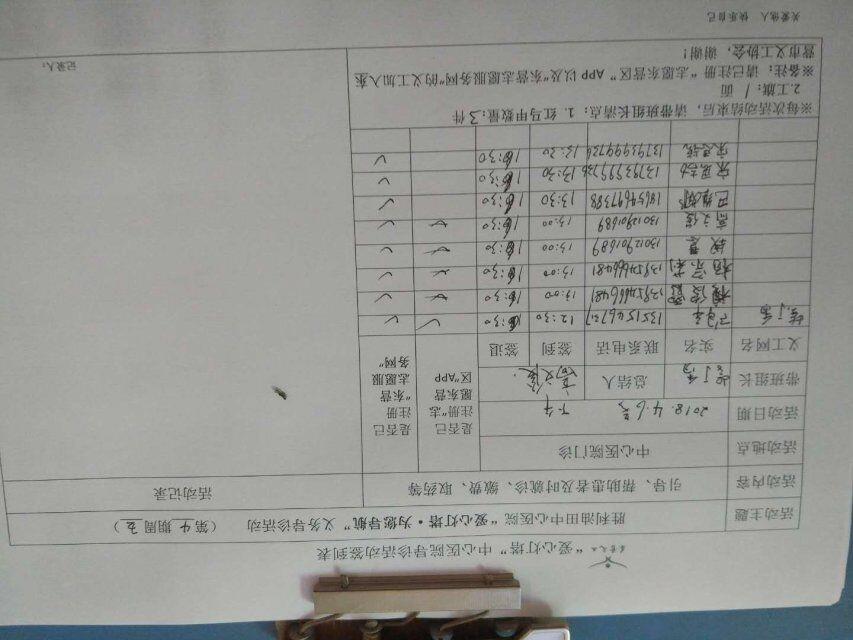 “爱心灯塔”中心医院导诊活动签到表
活动主题 胜利油田中心医院“爱心灯塔·为您导航”义务导诊活动 (第4期周五)
活动内容 引导、帮助患者及时就诊、缴费、取药等 活动记录
活动地点 中心医院门诊
活动日期 2018.4.6 下午
带班组长 总结人
是否已注册“志愿东营区”APP
是否已注册“东营志愿服务网”
义工网名 实名 联系电话 签到 签退
12:30 16:30 ✓ ✓
13954666481 13:00 16:30 ✓ ✓
杨宗利 13954666481 13:00 16:30 ✓ ✓
13012901689 13:00 16:30 ✓ ✓
高文儒 13012901689 13:00 16:30 ✓ ✓
18654697388 13:30 16:30 ✓
13793999736 13:30 16:30 ✓
13793999736 13:30 16:30 ✓
※每次活动结束后,请带班组长清点:1.红马甲数量:3件
2.工旗: / 面
※备注:请已注册“志愿东营区”APP以及“东营志愿服务网”的义工加入东
营市义工协会,谢谢!
记录人:
关爱他人 快乐自己